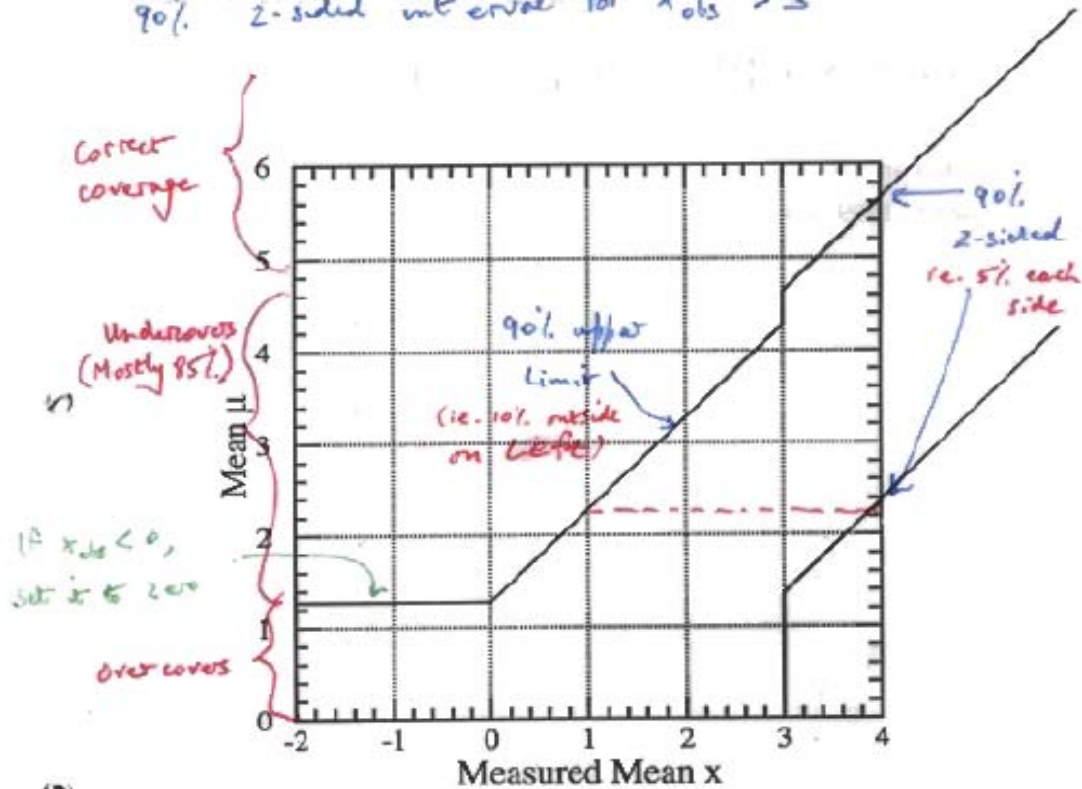 90% 2-sided interval for x obs > 3
Correct
coverage
6
5
4
3
2
1
0
Undercovers
(Mostly 85%)
Mean μ
If x obs < 0,
set it to zero
Over covers
90% upper
Limit
(ie. 10% outside
on Left)
90%
2-sided
ie. 5% each
side
-2 -1 0 1 2 3 4
Measured Mean x